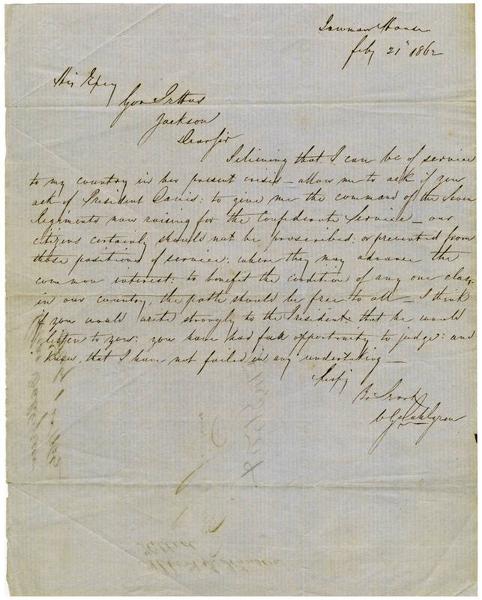 Bowman House
feby 21st 1862
His Expy
Gov Pettus
Jackson
Dear Sir
Believing that I can be of service
to my country in her present crisis - allow me to ask if you
ask of President Davis: to give me the command of the Seven
Regiments now raising for the Confederate Service - our
citizens certainly should not be proscribed, or prevented from
those positions of service; when they may advance the
common interest; to benefit the condition of any one class
in our country, the path should be free to all - I think
if you would write strongly to the President that he would
listen to you; you have had full opportunity to judge: and
know, that I have not failed in any undertaking -
Respfy
C G Dahlgren